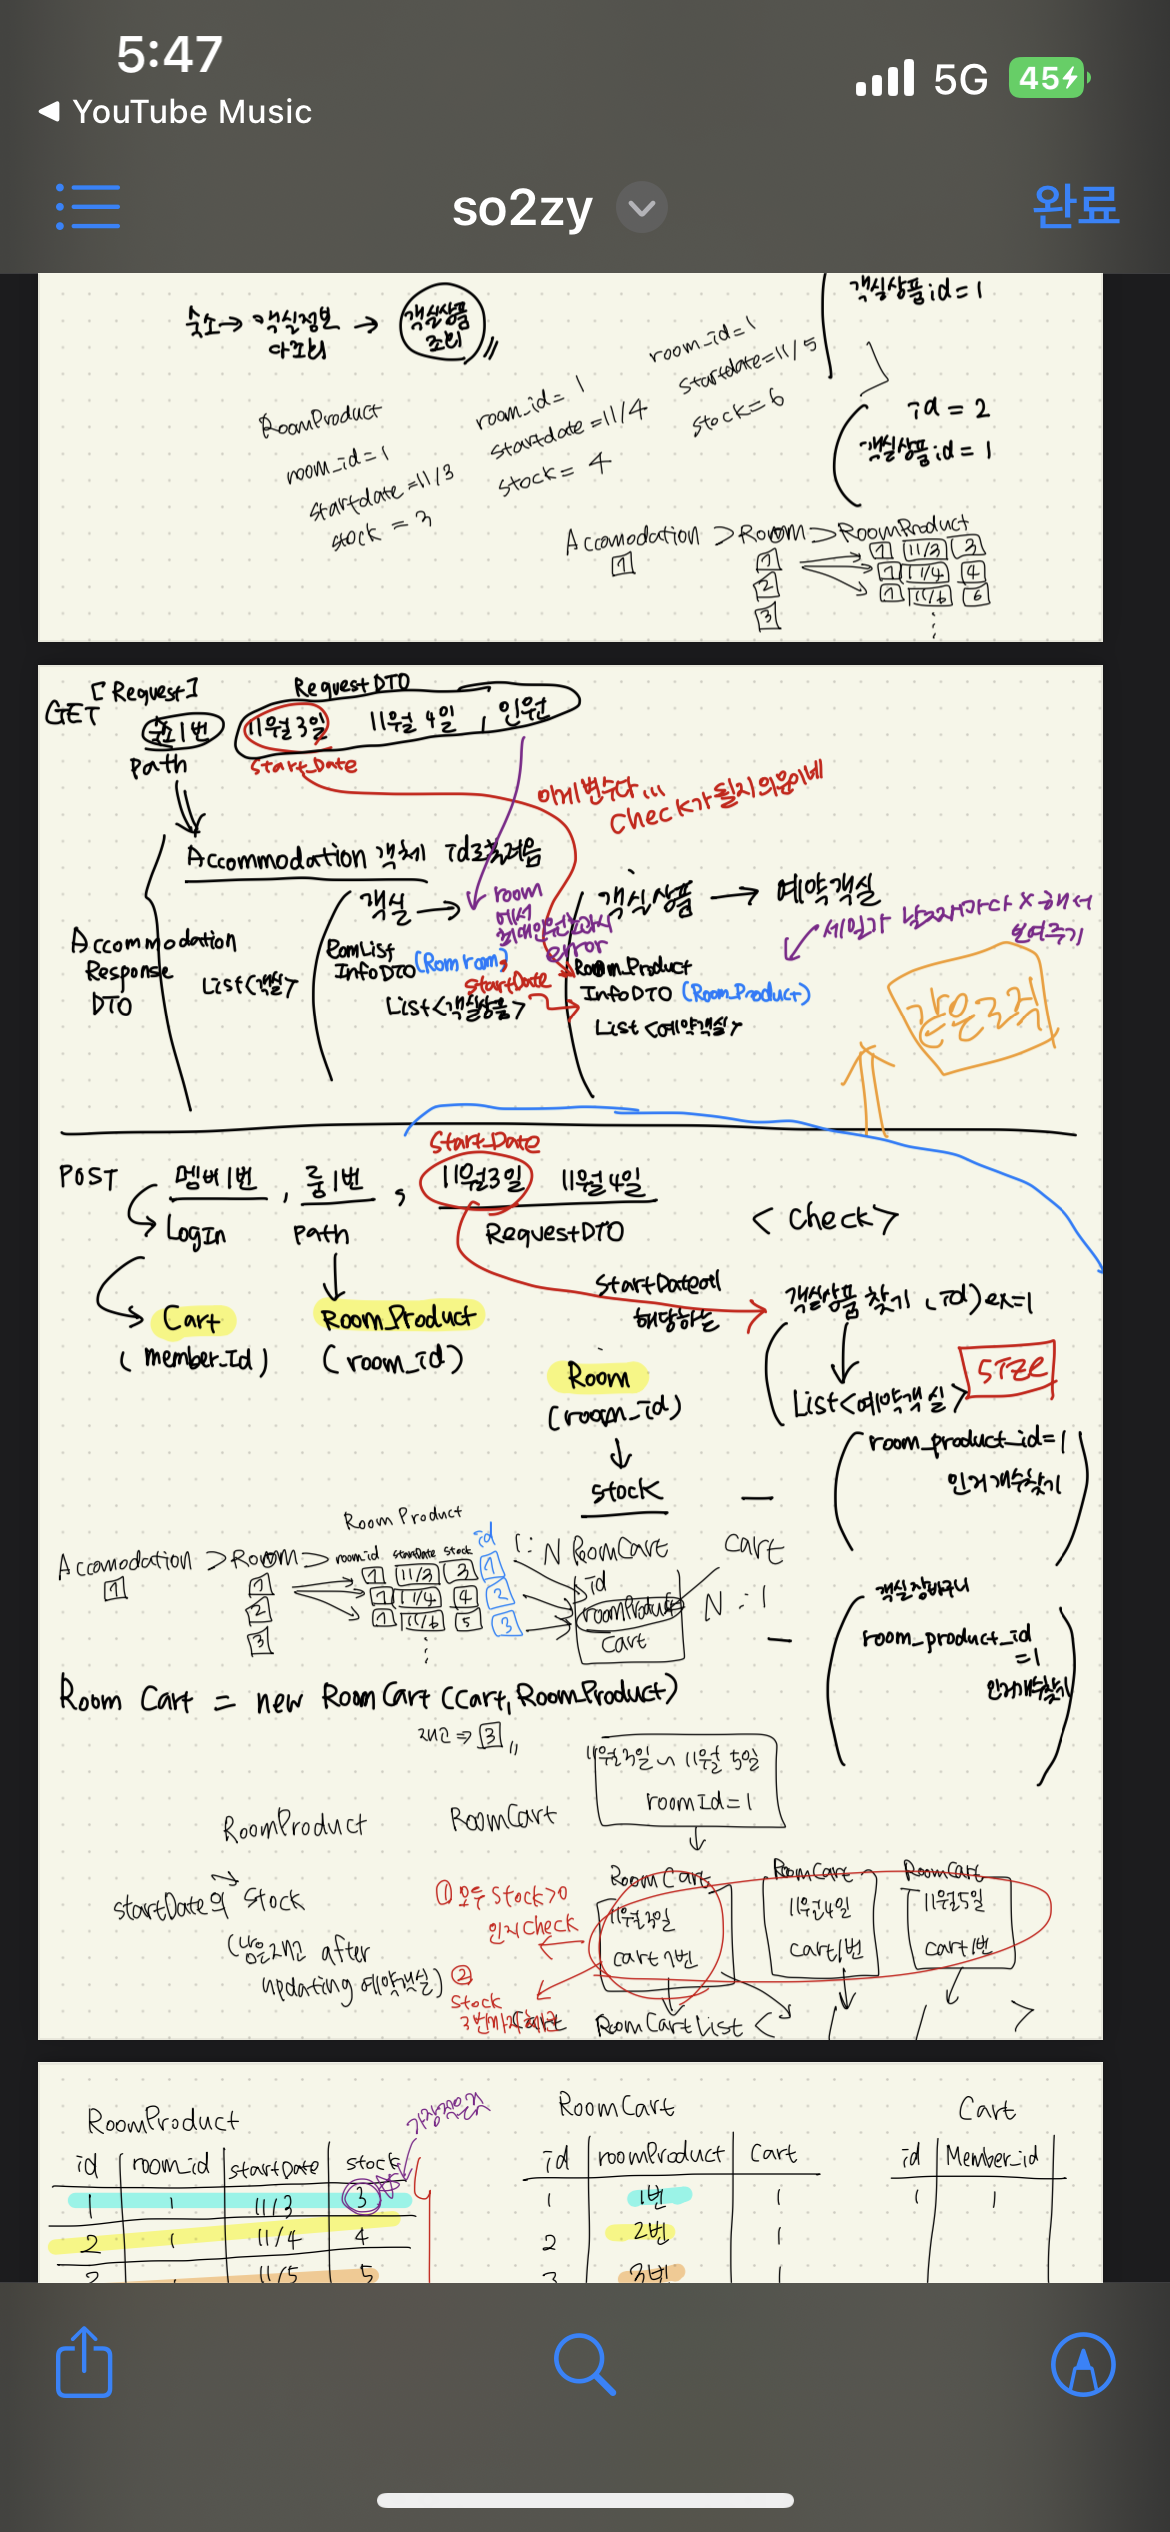 5:47
5G
45
YouTube Music
so2zy
완료
객실상품id=1
숙소→ 객실정보 → 객실상품
다조회 조회
room_id=1
startdate=11/5
stock=6
RoomProduct
room_id=1
startdate=11/3
stock = 3
room_id=1
startdate=11/4
stock= 4
id = 2
객실상품id=1
Accomodation >Room>RoomProduct
1 1 1 11/3 3
2 1 11/4 4
3 1 11/6 6
[Request]
RequestDTO
GET
숙소1번 11월3일 11월 4일 , 인원
Path Start_Date
이게변수다...
Check가 될지의문이네
Accommodation 객체 id로
객실 → 객실상품 → 예약객실
room
에서
최대인원
error
날짜마다 x 해서
보여주기
Accommodation
Response
DTO
List<객실>
RoomList
InfoDTO (Room room)
StartDate
List<객실상품>
Room_Product
InfoDTO (Room_Product)
List<예약객실>
같은로직
POST 멤버1번 , 룸1번 , 11월3일 11월4일
Start_Date
LogIn Path RequestDTO
<Check>
StartDate에
해당하는
객실상품 찾기 (id) ex=1
Cart Room_Product
(member_Id) (room_id)
Room
(room_id)
SIZE
List<예약객실>
room_product_id=1
인거개수찾기
stock —
Room Product
Accomodation >Room> roomid startDate stock id
1 1 1 11/3 3 1
2 1 11/4 4 2
3 1 11/6 5 3
1:N RoomCart Cart
id
roomProduct N:1
Cart
—
객실장바구니
room_product_id
=1
인거개수찾기
Room Cart = new RoomCart (Cart, Room_Product)
재고 ⇒ 3
11월3일 ~ 11월 5일
roomId=1
RoomProduct RoomCart
startDate의 Stock
(남은재고 after
updating 예약객실)
① 모두 Stock>0
인지check
②
Stock
RoomCart RoomCart RoomCart
11월3일 11월4일 11월5일
cart1번 cart1번 cart1번
RoomCartList < >
RoomProduct
가장작은값
id room_id startDate stock
1 1 11/3 3
2 1 11/4 4
11/5 5
RoomCart
id roomProduct Cart
1 1번 1
2 2번 1
3 3번 1
Cart
id Member_id
1 1